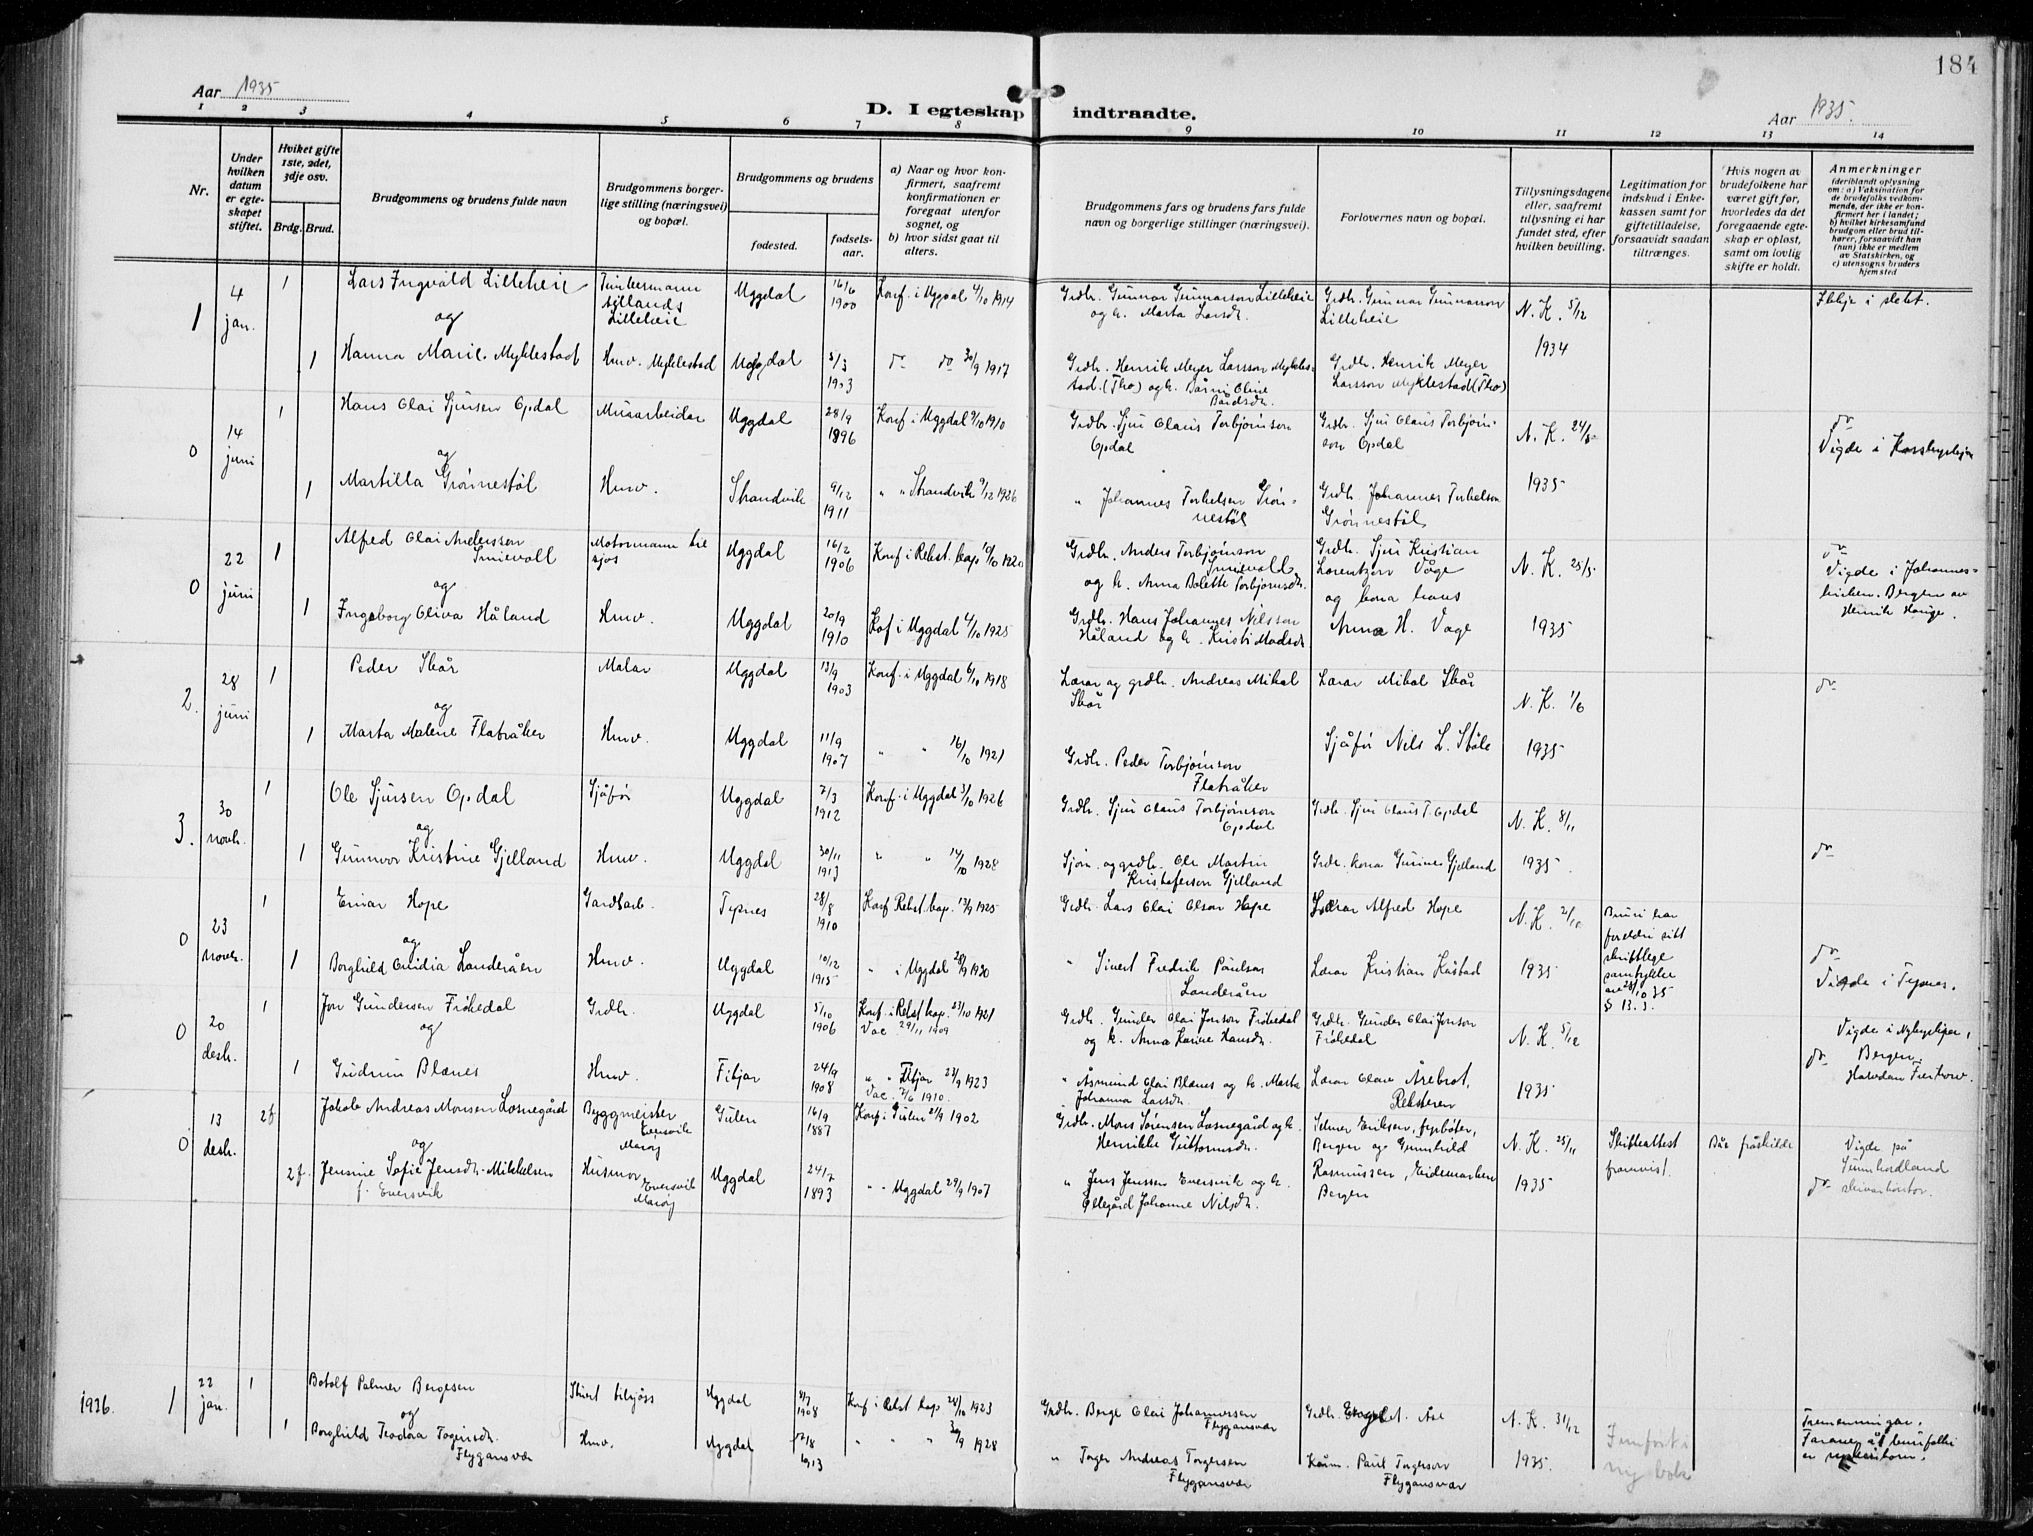 184
Aar 1935
D. I egteskap indtraadte.
Aar 1935.
1 2 3 4 5 6 7 8 9 10 11 12 13 14
Nr.
Under hvilken datum er egte- skapet stiftet.
Hvilket gifte 1ste, 2det, 3dje osv.
Brdg. Brud.
Brudgommens og brudens fulde navn
Brudgommens borger- lige stilling (næringsvei) og bopæl.
Brudgommens og brudens
fødested.
fødsels- aar.
a) Naar og hvor kon- firmert, saafremt konfirmationen er foregaat utenfor sognet, og
b) hvor sidst gaat til alters.
Brudgommens fars og brudens fars fulde navn og borgerlige stillinger (næringsvei).
Forlovernes navn og bopæl.
Tillysningsdagene eller, saafremt tillysning ei har fundet sted, efter hvilken bevilling.
Legitimation for indskud i Enke- kassen samt for giftetilladelse, forsaavidt saadan tiltrænges.
Hvis nogen av brudefolkene har været gift før, hvorledes da det foregaaende egte- skap er opløst, samt om lovlig skifte er holdt.
Anmerkninger
(deriblandt oplysning om: a) Vaksination for de brudefolks vedkom- mende, der ikke er kon- firmert her i landet; b) hvilket kirkesamfund brudgom eller brud til- hører, forsaavidt han (hun) ikke er medlem av Statskirken, og c) utensogns bruders hjemsted
1 4 jan. 1 Lars Ingvald Lilleheie Uggdal 16/6 1900 Konf. i Uggdal 4/10 1914 Grdbr. Gunnar Gunnarson Lilleheie og k. Marta Larsdtr. Grdbr. Gunnar Gunnarson Lilleheie N. K. 5/12 1934 Ikkje i slekt.
og
1 Hanna Marie Myklestad Husv. Myklestad Uggdal 3/3 1903 do do 30/9 1917 Grdbr. Henrik Meyer Larsson Mykles- tad (Tho) og k. Olive Bårdsdtr. Grdbr. Henrik Meyer Larsson Myklestad (Tho)
0 14 juni 1 Hans Olai Sjursen Opdal Murarbeidar Uggdal 28/9 1896 Konf. i Uggdal 1910 Grdbr. Sjur Olaus Torbjørnson Opdal Grdbr. Sjur Olaus Torbjørn- son Opdal N. K. 1935 do Vigde i
og
1 Martilla Grønnestøl Husv. Strandvik 9/12 1911 " " Strandvik 1926 " Johannes Torkelsen Grøn- nestøl Grdbr. Johannes Torkelson Grønnestøl
0 22 juni 1 Alfred Olai Andersson Smievoll Motormann til sjøs Uggdal 16/2 1906 Konf i Rekst. kap. 10/10 1920 Grdbr. Anders Torbjørnson Smievold og k. Anna Bolette Torbjørnsdtr. Grdbr. Sjur Kristian Lorentzen Våge og kona hans Anna H. Vage N. K. 25/5 1935 do Vigde i Johannes- kirken. Bergen av Henrik Hauge.
og
1 Ingeborg Oliva Håland Husv. Uggdal 20/9 1910 Kof i Uggdal 4/10 1925 Grdbr. Hans Johannes Nilsson Håland og k. Kristi Madsdtr.
2. 28 juni 1 Peder Skår Malar Uggdal 13/9 1903 Konf. i Uggdal 6/10 1918 Lærar og grdbr. Andreas Mikal Skår Lærar Mikal Skår N. K. 1/6 1935 do
og
1 Marta Malene Flatråker Husv. Uggdal 11/9 1907 " " 16/10 1921 Grdbr. Peder Torbjørnson Flatråker Sjåfør Nils L. Støle
3. 30 novb. 1 Ole Sjursen Opdal Sjåfør Uggdal 7/3 1912 Konf. i Uggdal 3/10 1926 Grdbr. Sjur Olaus Torbjørnson Opdal Grdbr. Sjur Olaus T. Opdal N. K. 8/11 1935. do
og
1 Gunnvor Kristine Gjelland Husv. Uggdal 30/11 1913 " " 14/10 1928 Sjøm. og grdbr. Ole Martin Kristoferson Gjelland Grdbr. kona Gurine Gjelland
0 23 novb. 1 Einar Hope Gardsarb. Tysnes 28/8 1910 Konf. Rekst. kap. 13/9 1925 Grdbr. Lars Olai Olson Hope Lærar Alfred Hope N. K. 2/10 1935 Bruri har foreldri sitt skriftlege samtykke § 13. 3. do Vigde i Tysnes.
og
1 Borghild Ovidia Landeråen Husv. Uggdal 10/12 1915 " i Uggdal 28/9 1930 " Sivert Fredrik Paulsen Landeråen Lærar Kristian Kåstad
0 20 desb. 1 Jon Gundersen Frøkedal Grdbr. Uggdal 5/10 1906 Konf. i Rekst. kap. 23/10 1921 Vac. 29/11 1909 Grdbr. Gunder Olai Jonson Frøkedal og k. Anna Karine Hansdtr. Grdbr. Gunder Olai Jonson Frøkedal N. K. 5/12 1935 Vigde i Bergen do
og
1 Gudrun Blænes Husv. Fitjar 24/9 1908 " " Fitjar 23/9 1923 Vac. 2/6 1910. " Åsmund Olai Blænes og k. Marta Johanna Larsdtr. Lærar Olav Årebrot, Reksteren
0 13 desb. 2 f Jakob Andreas Monsen Losnegård Byggmeister Eversvik Gulen 16/9 1887 Konf. i Gulen 21/9 1902 Grdbr. Mons Sørensen Losnegård og k. Henrikke Guttormsdtr. Selmer Eriksen, Bergen og Gunnhild Rasmussen, Eidemarken Bergen N. K. 25/11 1935 Skifteattest framvist. Bæ fråskilde Vigde på Sunnhordland skrivarkontor.
og
2 f. Jensine Sofie Jensdtr. Mikkelsen f. Eversvik Husmor Eversvik Uggdal 24/7 1893 " " Uggdal 29/9 1907 " Jens Jenssen Eversvik og k. Ellegård Johanne Nilsdtr. do
1936. 1 22 jan. 1 Botolf Palmer Bergesen Stuert tilsjøss Uggdal 1908 Konf. i Rekst kap 28/10 1923 Grdbr. Berge Olai Johannessen Flygansvær Grdbr. Åse N. K. 31/12 1935. Tremenningar.
og
1 Borghild Teodora Torgersdtr. Flygansvær Husv. Uggdal 12/8 1913 " " " 30/9 1928 " Torger Andreas Torgersen Flygansvær Paul Torgerson Flygansvær
Innført i ny bok